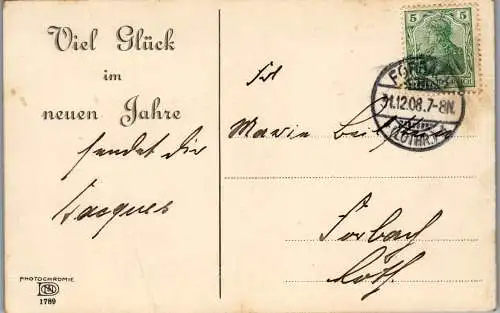 Viel Glück
im
neuen Jahre
sendet dir
Jacques
PHOTOCHROMIE
1789
5 5
FORBACH
31.12.08.7-8N.
(LOTHR.)
Frl
Marie
Forbach
Loth.